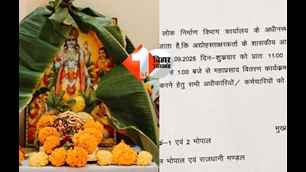 1
लोक निर्माण विभाग कार्यालय के अधीनस्थ
जाता है,कि अद्योहस्ताक्षरकर्ता के शासकीय आ
.09.2025 दिन-शुक्रवार को प्रातः 11:00
1:00 बजे से महाप्रसाद वितरण कार्यक्रम
करने हेतु सभी अधीकारियों/ कर्मचारियों को
मुख्य
क-1 एवं 2 भोपाल
भोपाल एवं राजधानी मण्डल